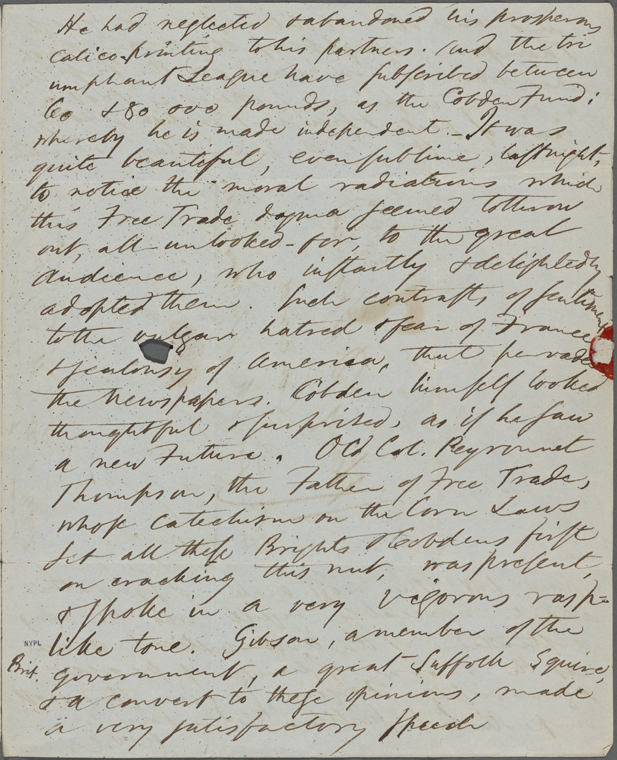 He had neglected & abandoned his prosperous
calico-printing to his partners. And the tri
umphant League have subscribed between
60 & 80 000 pounds, as the Cobden Fund;
whereby he is made independent. – It was
quite beautiful, even sublime, last night,
to notice the moral radiations which
this Free Trade dogma seemed to throw
out, all-unlooked-for, to the great
audience, who instantly & delightedly
adopted them. Such contrasts of sentiment
to the vulgar hatred & fear of France
& jealousy of America, that pervade
the Newspapers. Cobden himself looked
thoughtful & surprised, as if he saw
a new Future. Old Col. Peyronnet
Thompson, the Father of Free Trade,
whose catechism on the Corn Laws
set all these Brights & Cobdens first
on cracking this nut, was present,
& spoke in a very vigorous rasp-
like tone. Gibson, a member of the
NYPL
Brit. government, a great Suffolk Squire,
& a convert to these opinions, made
a very satisfactory speech